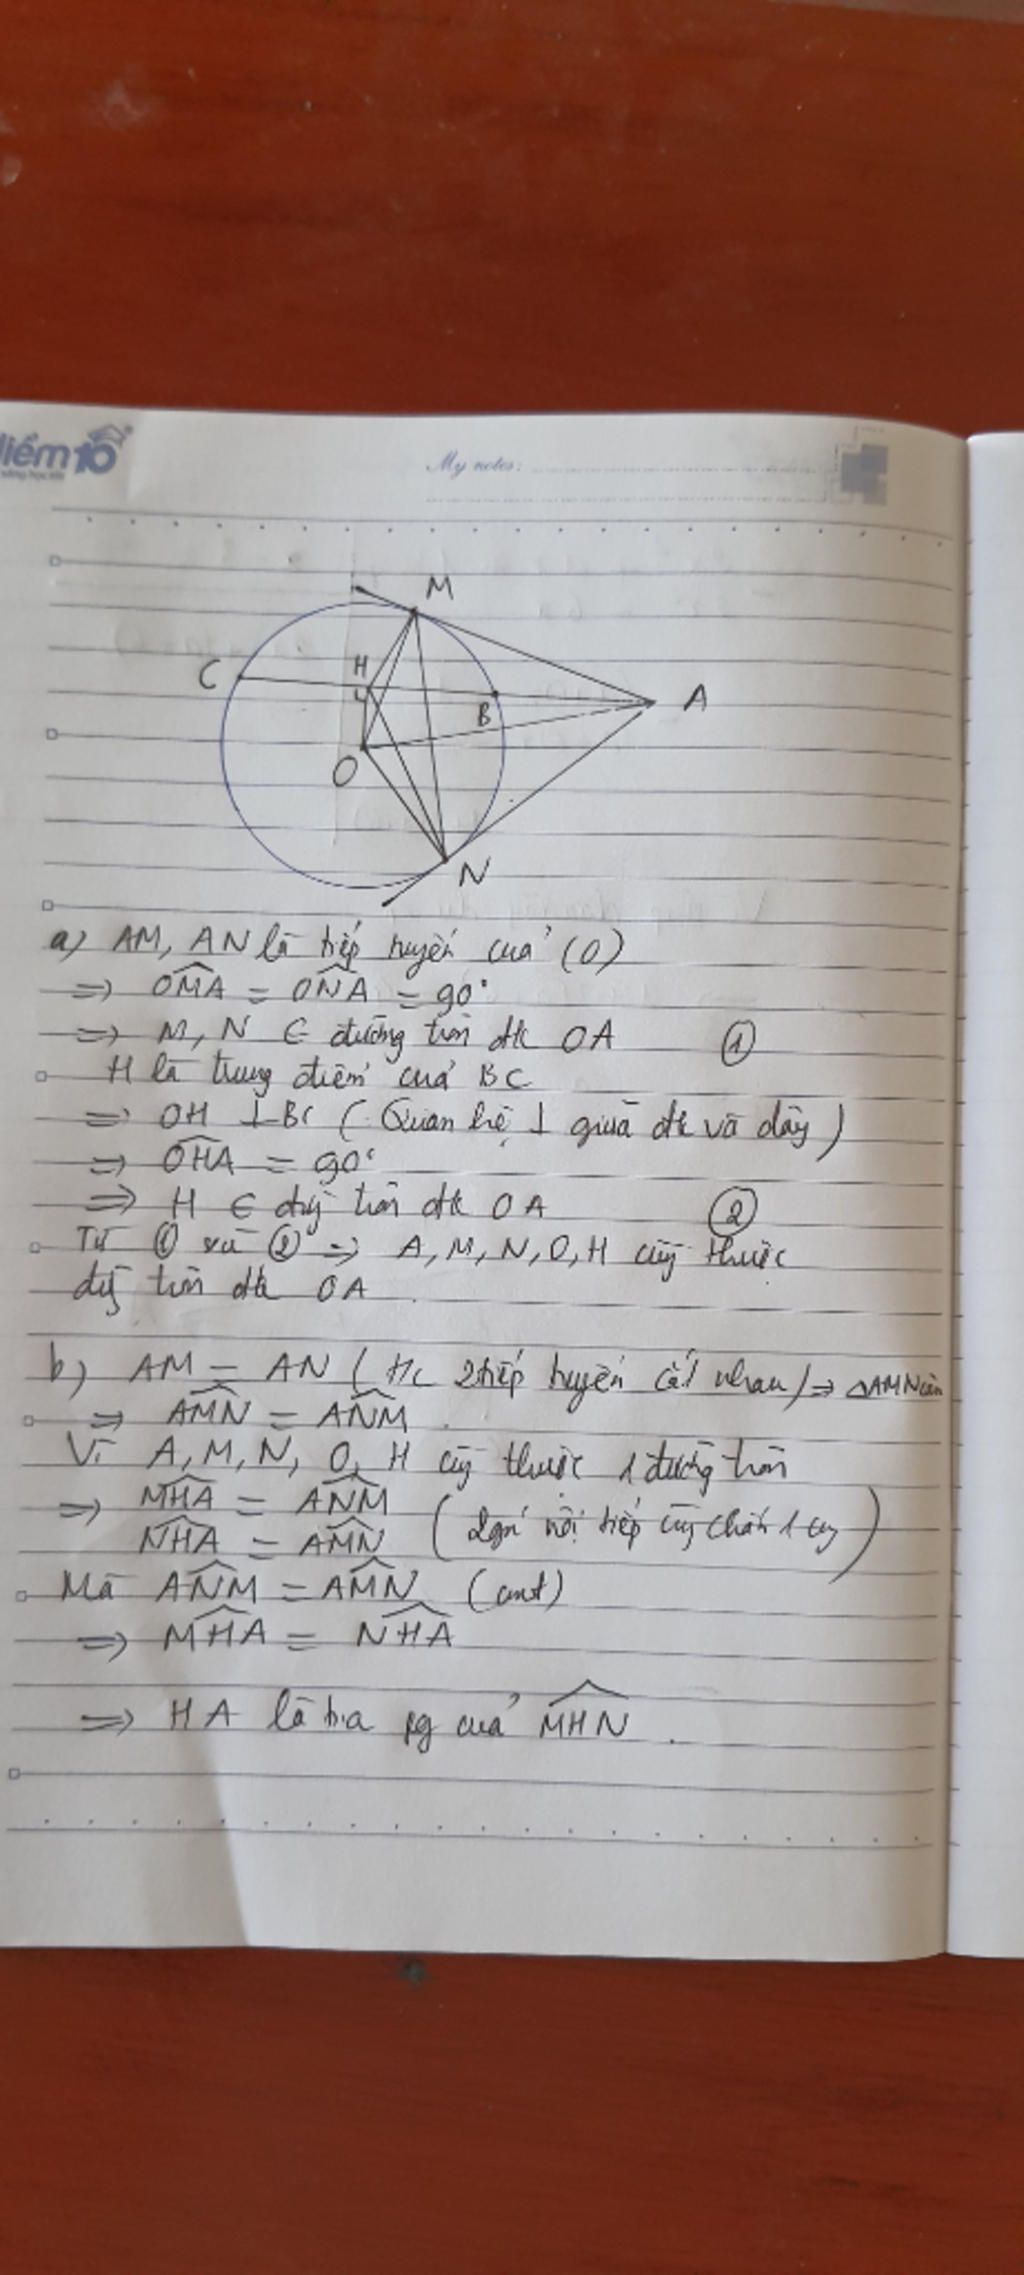 iểm10
My notes:
M
C
H
B
A
O
N
a) AM, AN là tiếp tuyến của (O)
=> OMA = ONA = 90°
=> M, N ∈ đường tròn đk OA ①
H là trung điểm của BC
=> OH ⊥ BC (Quan hệ ⊥ giữa đk và dây)
=> OHA = 90°
=> H ∈ đg tròn đk OA ②
Từ ① và ② => A, M, N, O, H cùng thuộc
đg tròn đk OA.
b) AM = AN (t/c 2 tiếp tuyến cắt nhau) => △AMN cân
=> AMN = ANM.
Vì A, M, N, O, H cùng thuộc 1 đường tròn
=> MHA = ANM
NHA = AMN (2 góc nội tiếp cùng chắn 1 cg)
Mà ANM = AMN (cmt)
=> MHA = NHA
=> HA là tia pg của MHN.